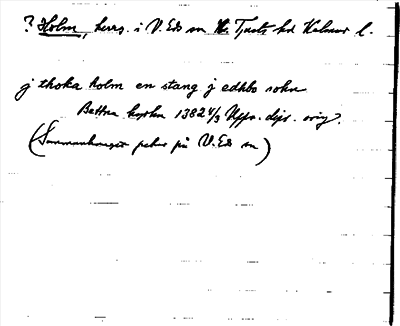 ? Holm, herrg. i V. Eds sn N. Tjusts hd Kalmar l.
j thoka holm en stang j edhbo sokn
Bettna kyrka 1382 4/3 Upps. dipl. orig.
(Sammanhanget pekar på V. Eds sn)